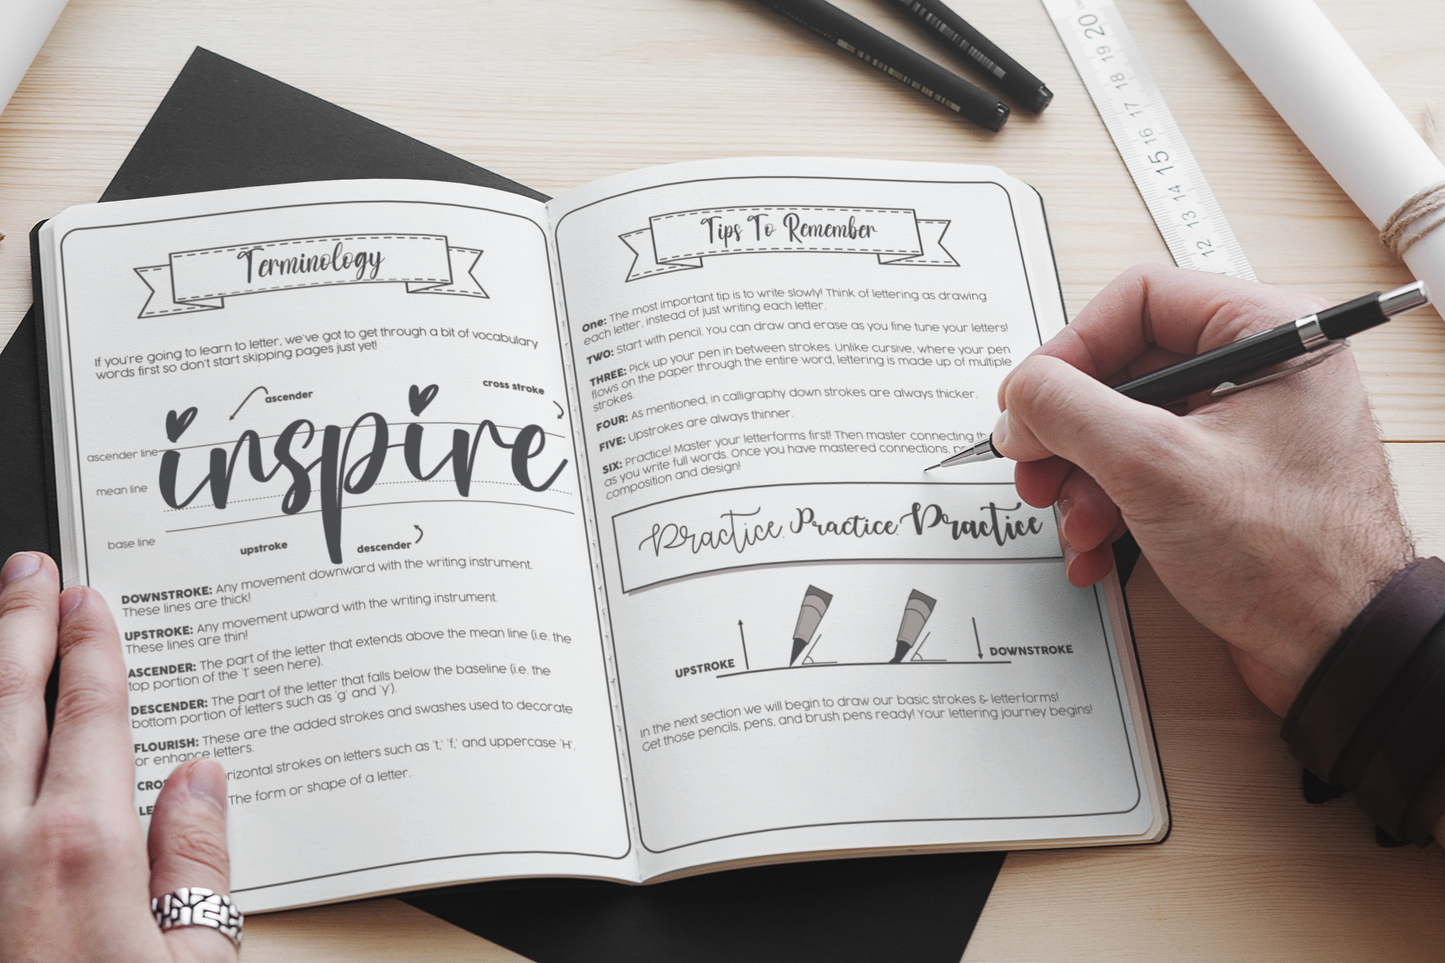 Terminology
If you're going to learn to letter, we've got to get through a bit of vocabulary
words first so don't start skipping pages just yet!
ascender
cross stroke
ascender line
mean line
base line
inspire
upstroke
descender
DOWNSTROKE: Any movement downward with the writing instrument.
These lines are thick!
UPSTROKE: Any movement upward with the writing instrument.
These lines are thin!
ASCENDER: The part of the letter that extends above the mean line (i.e. the
top portion of the 't' seen here).
DESCENDER: The part of the letter that falls below the baseline (i.e. the
bottom portion of letters such as 'g' and 'y').
FLOURISH: These are the added strokes and swashes used to decorate
or enhance letters.
strokes on letters such as 't,' 'f,' and uppercase 'H'.
The form or shape of a letter.
Tips To Remember
One: The most important tip is to write slowly! Think of lettering as drawing
each letter, instead of just writing each letter.
TWO: Start with pencil. You can draw and erase as you fine tune your letters!
THREE: Pick up your pen in between strokes. Unlike cursive, where your pen
flows on the paper through the entire word, lettering is made up of multiple
strokes.
FOUR: As mentioned, in calligraphy down strokes are always thicker.
FIVE: Upstrokes are always thinner.
SIX: Practice! Master your letterforms first! Then master connecting
as you write full words. Once you have mastered connections,
composition and design!
Practice. Practice. Practice
UPSTROKE
DOWNSTROKE
In the next section we will begin to draw our basic strokes & letterforms!
Get those pencils, pens, and brush pens ready! Your lettering journey begins!
20
19
18
17
16
15
14
13
12